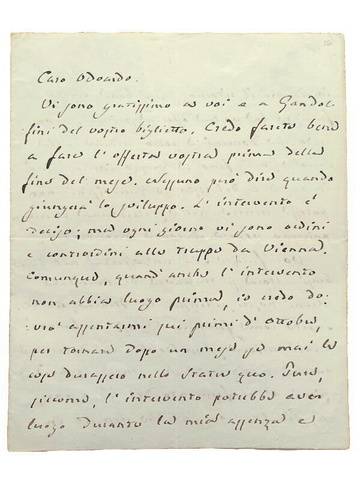 Caro Odoardo.
Vi sono gratissimo a voi e a Gandol-
fini del vostro biglietto. Credo farete bene
a fare l'offerta vostra prima della
fine del mese. Nessuno può dire quando
giungerà lo sviluppo. L'intervento è
deciso; ma ogni giorno vi sono ordini
e contrordini alle truppe da Vienna.
Comunque, quand'anche l'intervento
non abbia luogo prima, io credo do:
vrò assentarmi sui primi d'Ottobre,
per tornare dopo un mese se mai le
cose durassero nello Statu quo. Pure,
siccome, l'intervento potrebbe aver
luogo durante la mia assenza e